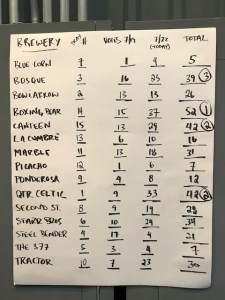 BREWERY # VOTES 7/19 7/22 (TODAY) TOTAL
BLUE CORN 7 1 4 5
BOSQUE 3 16 23 39 3
BOW & ARROW 2 13 13 26
BOXING BEAR 14 15 37 52 1
CANTEEN 15 13 29 42 2
LA CUMBRE 13 6 10 16
MARBLE 11 13 18 31
PICACHO 12 1 6 7
PONDEROSA 9 4 8 12
QTR. CELTIC 1 9 33 42 2
SECOND ST. 8 9 19 28
STARR BROS 6 10 24 34
STEEL BENDER 4 17 4 21
THE 377 5 3 4 7
TRACTOR 10 7 23 30